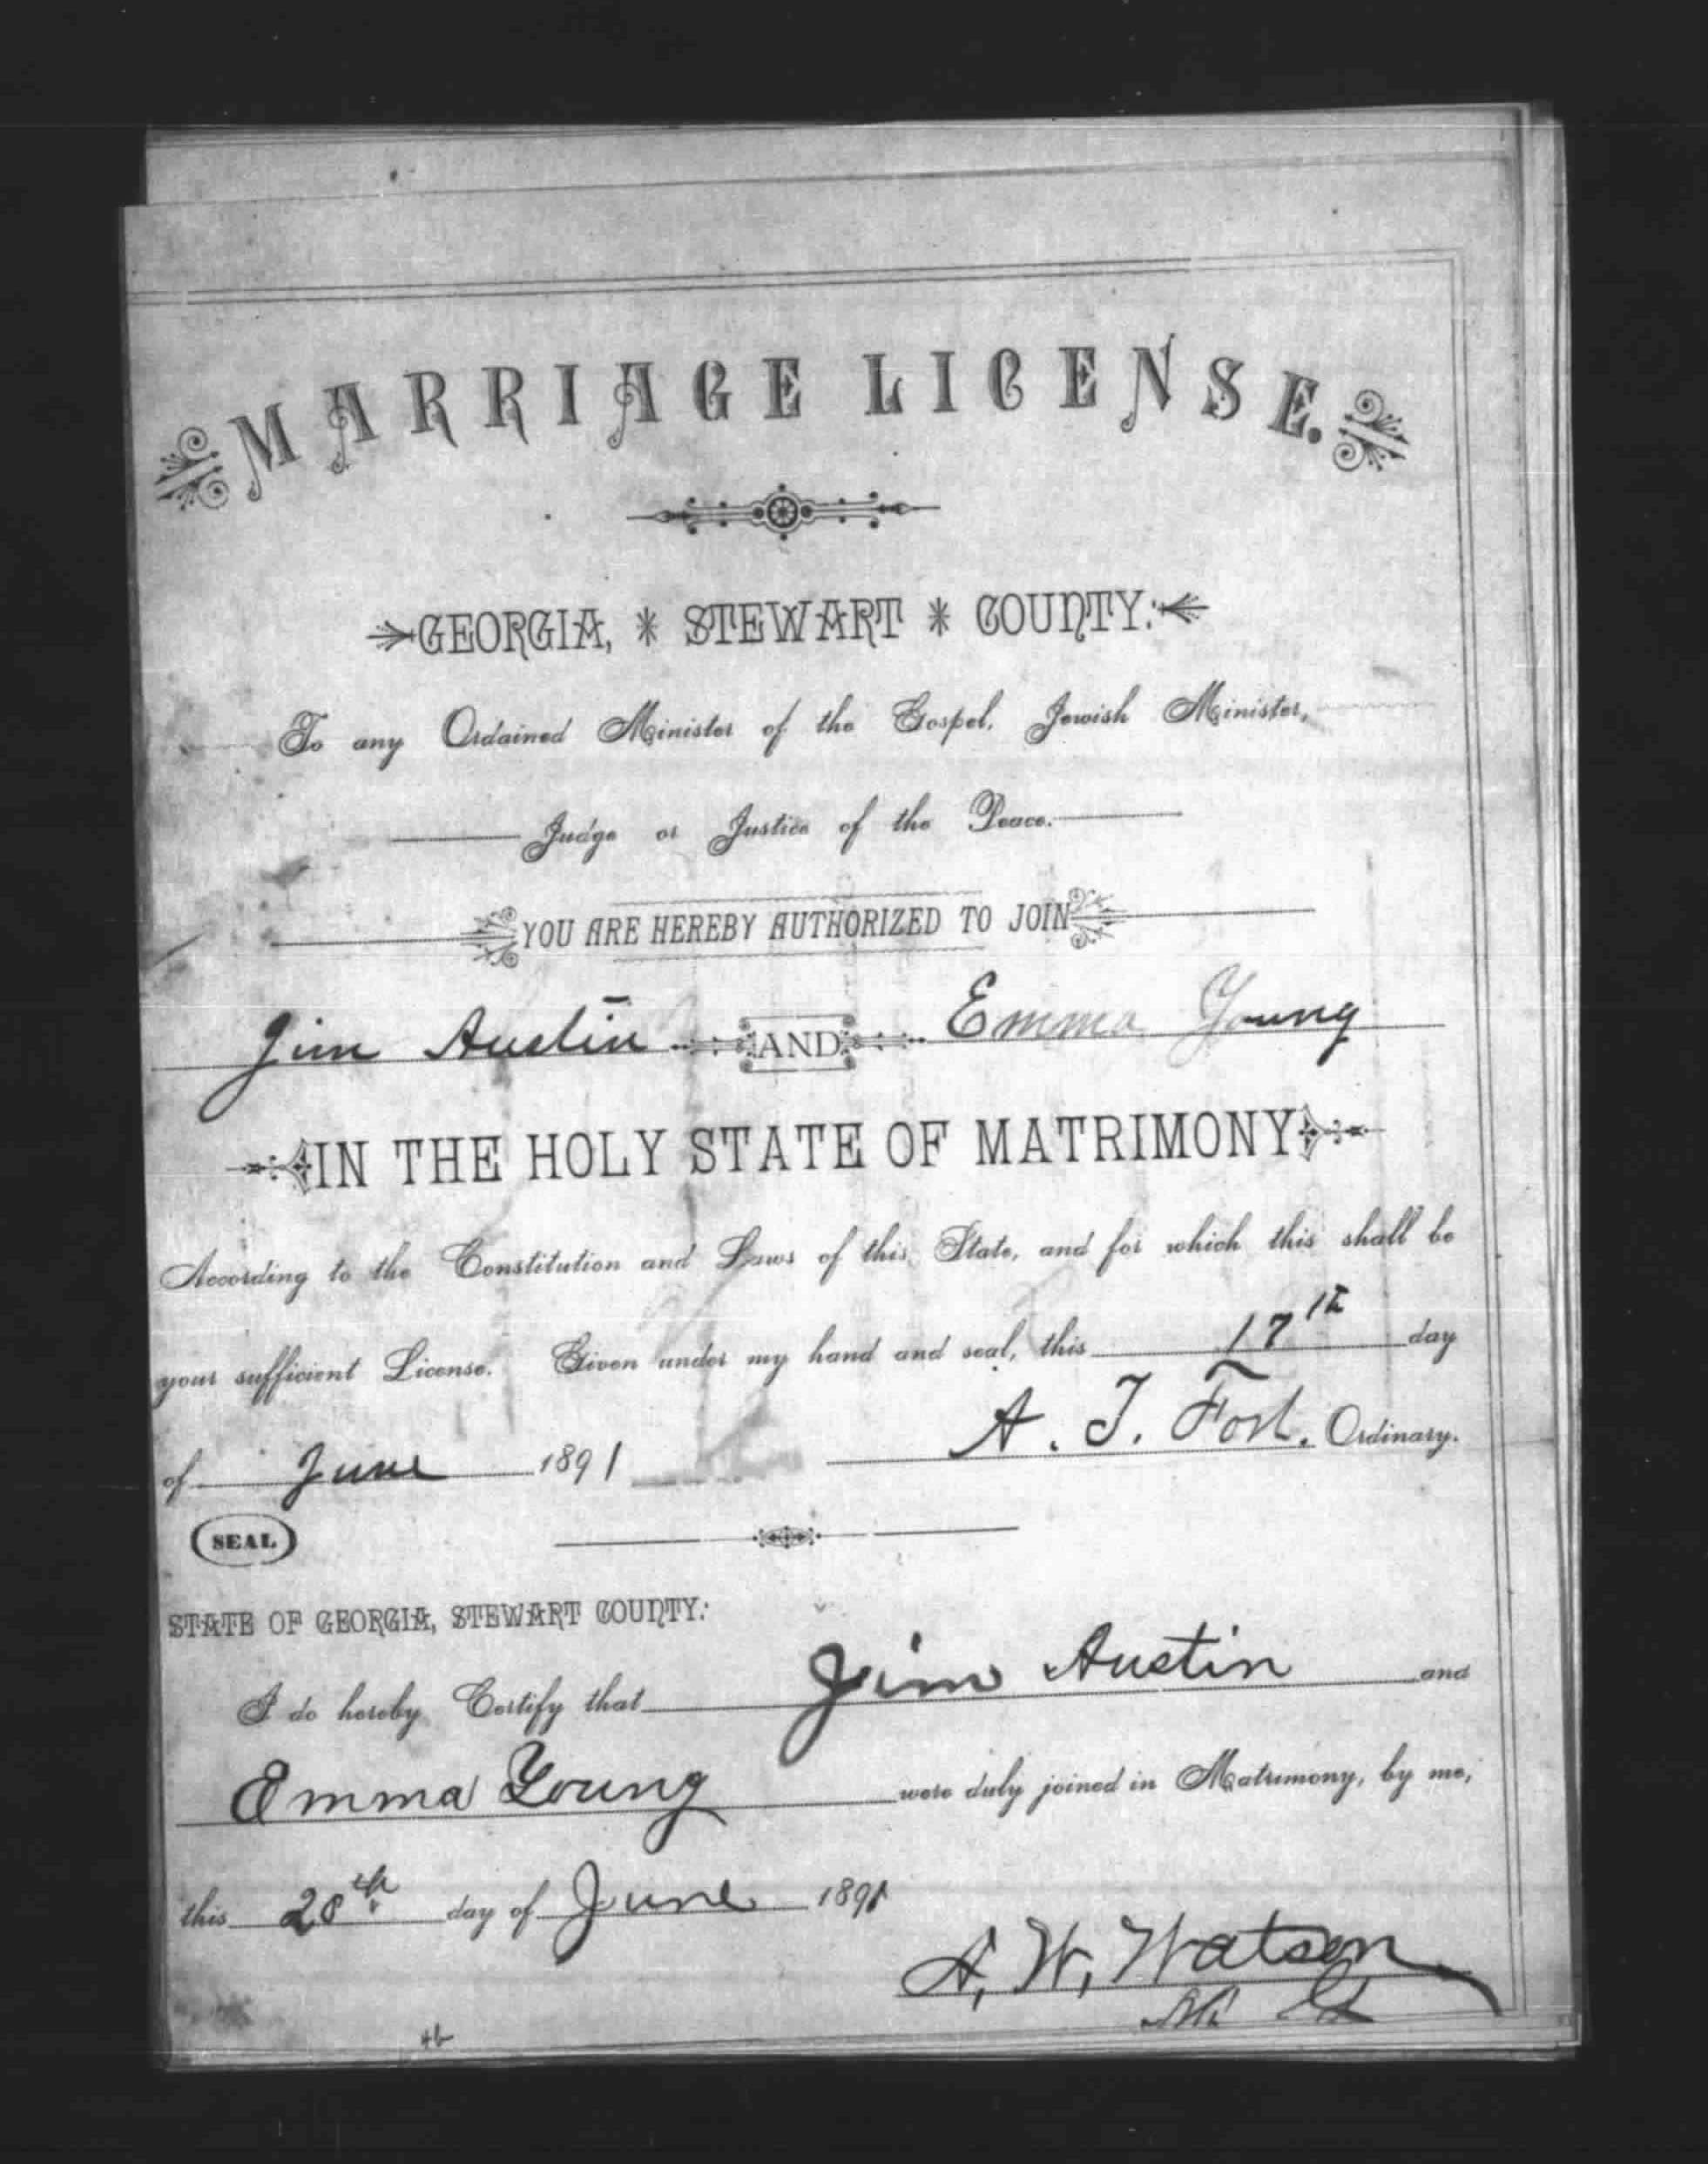 MARRIAGE LICENSE.
GEORGIA, * STEWART * COUNTY:
To any Ordained Minister of the Gospel, Jewish Minister,
Judge or Justice of the Peace.
YOU ARE HEREBY AUTHORIZED TO JOIN
Jim Austin AND Emma Young
IN THE HOLY STATE OF MATRIMONY
According to the Constitution and Laws of this State, and for which this shall be
your sufficient License. Given under my hand and seal, this 17th day
of June 1891 A. T. Fort. Ordinary.
(SEAL)
STATE OF GEORGIA, STEWART COUNTY:
I do hereby Certify that Jim Austin and
Emma Young were duly joined in Matrimony, by me,
this 20th day of June 1891
A. W. Watson
M G